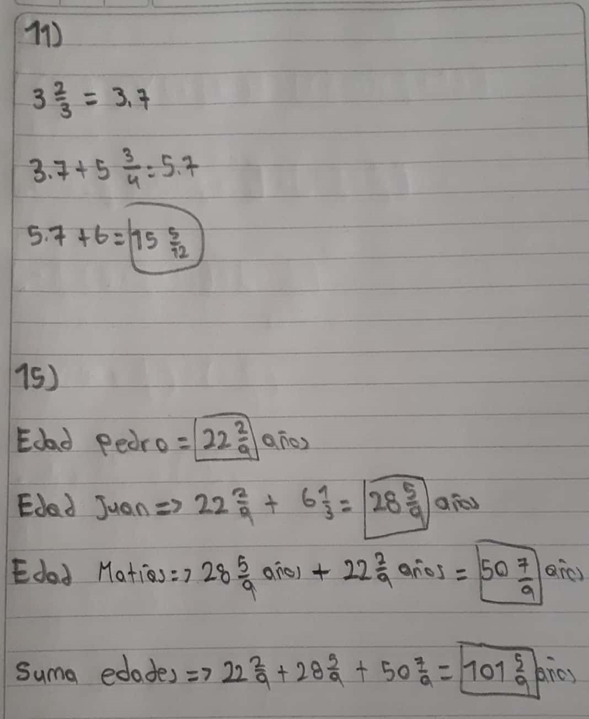 11)
3 2/3 = 3.7
3.7 + 5 3/4 = 5.7
5.7 + 6 = 15 5/12
15)
Edad pedro = 22 2/9 años
Edad Juan => 22 2/9 + 6 1/3 = 28 5/9 años
Edad Matias => 28 5/9 años + 22 2/9 años = 50 7/9 años
Suma edades => 22 2/9 + 28 5/9 + 50 7/9 = 101 5/9 años